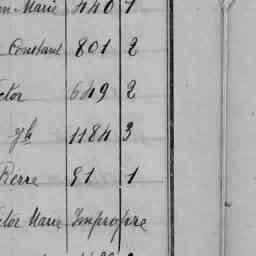 Marie 440 1
Constant 801 2
ctor 649 2
1184 3
Pierre 91 1
ctor Marie Impropre